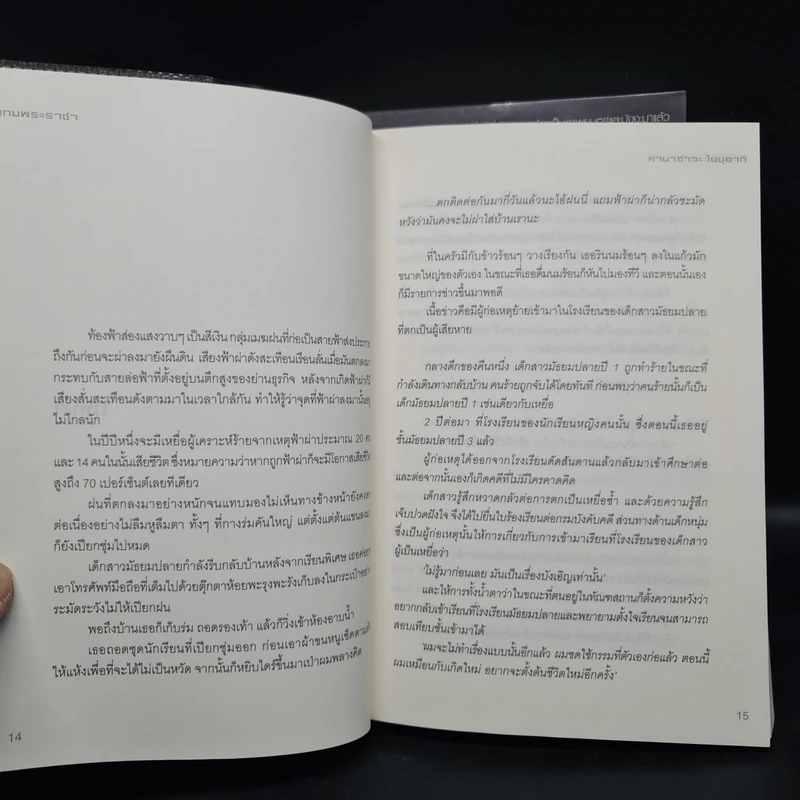 เกมพระราชา
ท้องฟ้าส่องแสงวาบๆ เป็นสีเงิน กลุ่มเมฆฝนที่ก่อเป็นสายฟ้าส่งประกาย
ถึงกันก่อนจะผ่าลงมายังผืนดิน เสียงฟ้าผ่าดังสะเทือนเรือนลั่นเมื่อมันตกลงมา
กระทบกับสายล่อฟ้าที่ตั้งอยู่บนตึกสูงของย่านธุรกิจ หลังจากเกิดฟ้าผ่าก็มี
เสียงสั่นสะเทือนดังตามมาในเวลาใกล้กัน ทำให้รู้ว่าจุดที่ฟ้าผ่าลงมานั้นอยู่
ไม่ไกลนัก
ในปีปีหนึ่งจะมีเหยื่อผู้เคราะห์ร้ายจากเหตุฟ้าผ่าประมาณ 20 คน
และ 14 คนในนั้นเสียชีวิต ซึ่งหมายความว่าหากถูกฟ้าผ่าก็จะมีโอกาสเสียชีวิต
สูงถึง 70 เปอร์เซ็นต์เลยทีเดียว
ฝนที่ตกลงมาอย่างหนักจนแทบมองไม่เห็นทางข้างหน้ายังคงตก
ต่อเนื่องอย่างไม่ลืมหูลืมตา ทั้งๆ ที่กางร่มคันใหญ่ แต่ตั้งแต่ต้นแขนลงมา
ก็ยังเปียกชุ่มไปหมด
เด็กสาวมัธยมปลายกำลังรีบกลับบ้านหลังจากเรียนพิเศษ เธอค่อยๆ
เอาโทรศัพท์มือถือที่เต็มไปด้วยตุ๊กตาห้อยพะรุงพะรังเก็บลงในกระเป๋าอย่าง
ระมัดระวังไม่ให้เปียกฝน
พอถึงบ้านเธอก็เก็บร่ม ถอดรองเท้า แล้วก็วิ่งเข้าห้องอาบน้ำ
เธอถอดชุดนักเรียนที่เปียกชุ่มออก ก่อนเอาผ้าขนหนูเช็ดตามตัว
ให้แห้งเพื่อที่จะได้ไม่เป็นหวัด จากนั้นก็หยิบไดร์ขึ้นมาเป่าผมพลางคิด
14
คานาซาวะ โนบุอากิ
...ตกติดต่อกันมากี่วันแล้วนะไอ้ฝนนี่ แถมฟ้าผ่าก็น่ากลัวชะมัด
หวังว่ามันคงจะไม่ผ่าใส่บ้านเรานะ
ที่ในครัวมีกับข้าวร้อนๆ วางเรียงกัน เธอรินนมร้อนๆ ลงในแก้วมัก
ขนาดใหญ่ของตัวเอง ในขณะที่เธอดื่มนมร้อนก็หันไปมองทีวี และตอนนั้นเอง
ก็มีรายการข่าวขึ้นมาพอดี
เนื้อข่าวคือมีผู้ก่อเหตุย้ายเข้ามาในโรงเรียนของเด็กสาวมัธยมปลาย
ที่ตกเป็นผู้เสียหาย
กลางดึกของคืนหนึ่ง เด็กสาวมัธยมปลายปี 1 ถูกทำร้ายในขณะที่
กำลังเดินทางกลับบ้าน คนร้ายถูกจับได้โดยทันที ก่อนพบว่าคนร้ายนั้นก็เป็น
เด็กมัธยมปลายปี 1 เช่นเดียวกับเหยื่อ
2 ปีต่อมา ที่โรงเรียนของนักเรียนหญิงคนนั้น ซึ่งตอนนี้เธออยู่
ชั้นมัธยมปลายปี 3 แล้ว
ผู้ก่อเหตุได้ออกจากโรงเรียนดัดสันดานแล้วกลับมาเข้าศึกษาต่อ
และต่อจากนั้นก็เกิดคดีที่ไม่มีใครคาดคิด
เด็กสาวรู้สึกหวาดกลัวต่อการตกเป็นเหยื่อซ้ำ และด้วยความรู้สึก
เจ็บปวดฝังใจ จึงได้ไปยื่นใบร้องเรียนต่อกรมบังคับคดี ส่วนทางด้านเด็กหนุ่ม
ซึ่งเป็นผู้ก่อเหตุนั้นให้การเกี่ยวกับการเข้ามาเรียนที่โรงเรียนของเด็กสาว
ผู้เป็นเหยื่อว่า
'ไม่รู้มาก่อนเลย มันเป็นเรื่องบังเอิญเท่านั้น'
และให้การทั้งน้ำตาว่าในขณะที่ตนอยู่ในทัณฑสถานก็ตั้งความหวังว่า
อยากกลับเข้าเรียนที่โรงเรียนมัธยมปลายและพยายามตั้งใจเรียนจนสามารถ
สอบเทียบชั้นเข้ามาได้
'ผมจะไม่ทำเรื่องแบบนั้นอีกแล้ว ผมชดใช้กรรมที่ตัวเองก่อแล้ว ตอนนี้
ผมเหมือนกับเกิดใหม่ อยากจะตั้งต้นชีวิตใหม่อีกครั้ง'
15